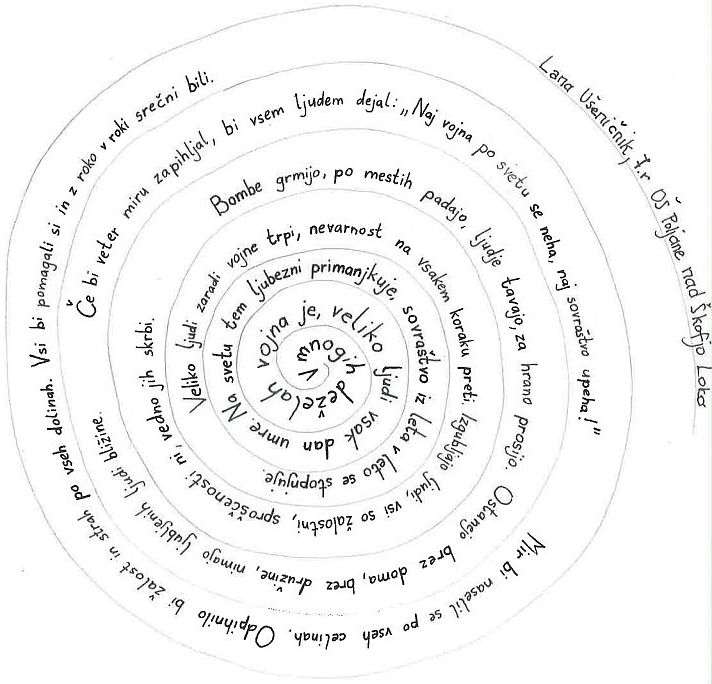 V mnogih deželah vojna je, veliko ljudi vsak dan umre.
Na svetu tem ljubezni primanjkuje, sovraštvo iz leta v leto se stopnjuje.
Veliko ljudi zaradi vojne trpi, nevarnost na vsakem koraku preti.
Izgubljajo ljudi, vsi so žalostni, sproščenosti ni, vedno jih skrbi.
Bombe grmijo, po mestih padajo, ljudje tavajo, za hrano prosijo.
Ostanejo brez doma, brez družine, nimajo ljubljenih ljudi bližine.
Če bi veter miru zapihljal, bi vsem ljudem dejal: „Naj vojna po svetu se neha, naj sovraštvo upeha!"
Mir bi naselil se po vseh celinah. Odpihnilo bi žalost in strah po vseh dolinah.
Vsi bi pomagali si in z roko v roki srečni bili.
Lana Ušeničnik, 7.r OŠ Poljane nad Škofjo Loko